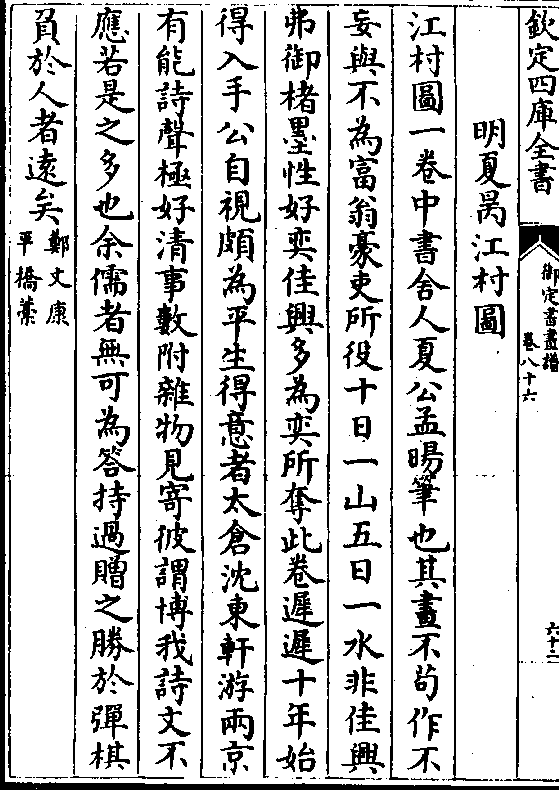 欽定四庫全書
御定書畫譜
卷八十六
六十二
明夏昺江村圖
江村圖一卷中書舍人夏公孟暘筆也其畫不茍作不
妄與不為富翁豪吏所役十日一山五日一水非佳興
弗御楮墨性好奕佳興多為奕所奪此卷遲遲十年始
得入手公自視頗為平生得意者太倉沈東軒游兩京
有能詩聲極好清事數附雜物見寄彼謂博我詩文不
應若是之多也余儒者無可為答持過贈之勝於彈棋
負於人者遠矣鄭文康
平橋藁